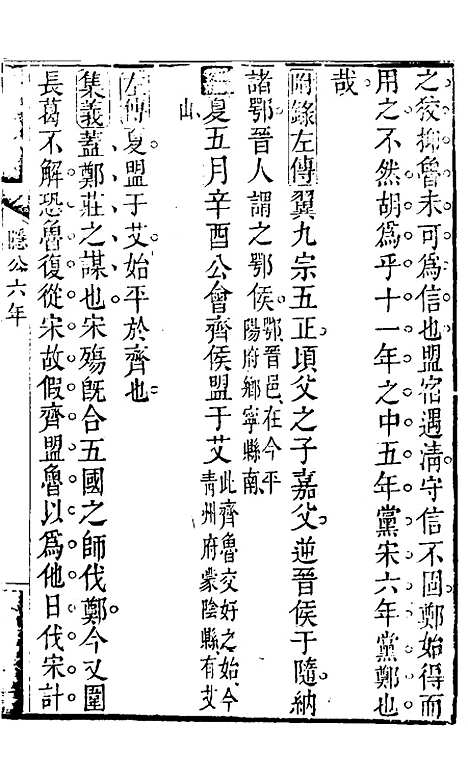 之狡抑魯未可爲信也盟宿遇清守信不固鄭始得而
用之不然胡爲乎十一年之中五年黨宋六年黨鄭也
哉
附錄左傳翼九宗五正頃父之子嘉父逆晉侯于隨納
諸鄂晉人謂之鄂侯鄂晉邑在今平
陽府鄉寧縣南
夏五月辛酉公會齊侯盟于艾此齊魯交好之始今
青州府蒙陰縣有艾
山
左傳夏盟于艾始平於齊也
集義蓋鄭莊之謀也宋殤旣合五國之師伐鄭今又圍
長葛不解恐魯復從宋故假齊盟魯以爲他日伐宋計
隱公六年